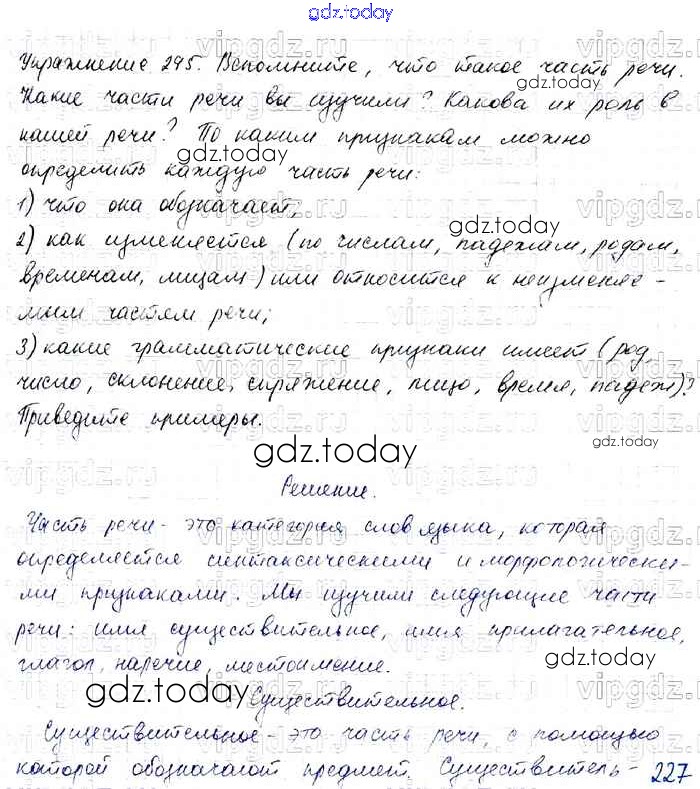 gdz.today
Упражнение 295. Вспомните, что такое часть речи.
Какие части речи вы изучили? Какова их роль в
нашей речи? По каким признакам можно
определить каждую часть речи:
1) что она обозначает,
2) как изменяется (по числам, падежам, родам,
временам, лицам) или относится к неизменяе-
мым частям речи;
3) какие грамматические признаки имеет (род,
число, склонение, спряжение, лицо, время, падеж)?
Приведите примеры.
gdz.today
Решение.
Часть речи - это категория слов языка, которая
определяется синтаксическими и морфологически-
ми признаками. Мы изучили следующие части
речи: имя существительное, имя прилагательное,
глагол, наречие, местоимение.
gdz.today
1) Существительное.
Существительное - это часть речи, с помощью
которой обозначают предмет. Существитель-
227